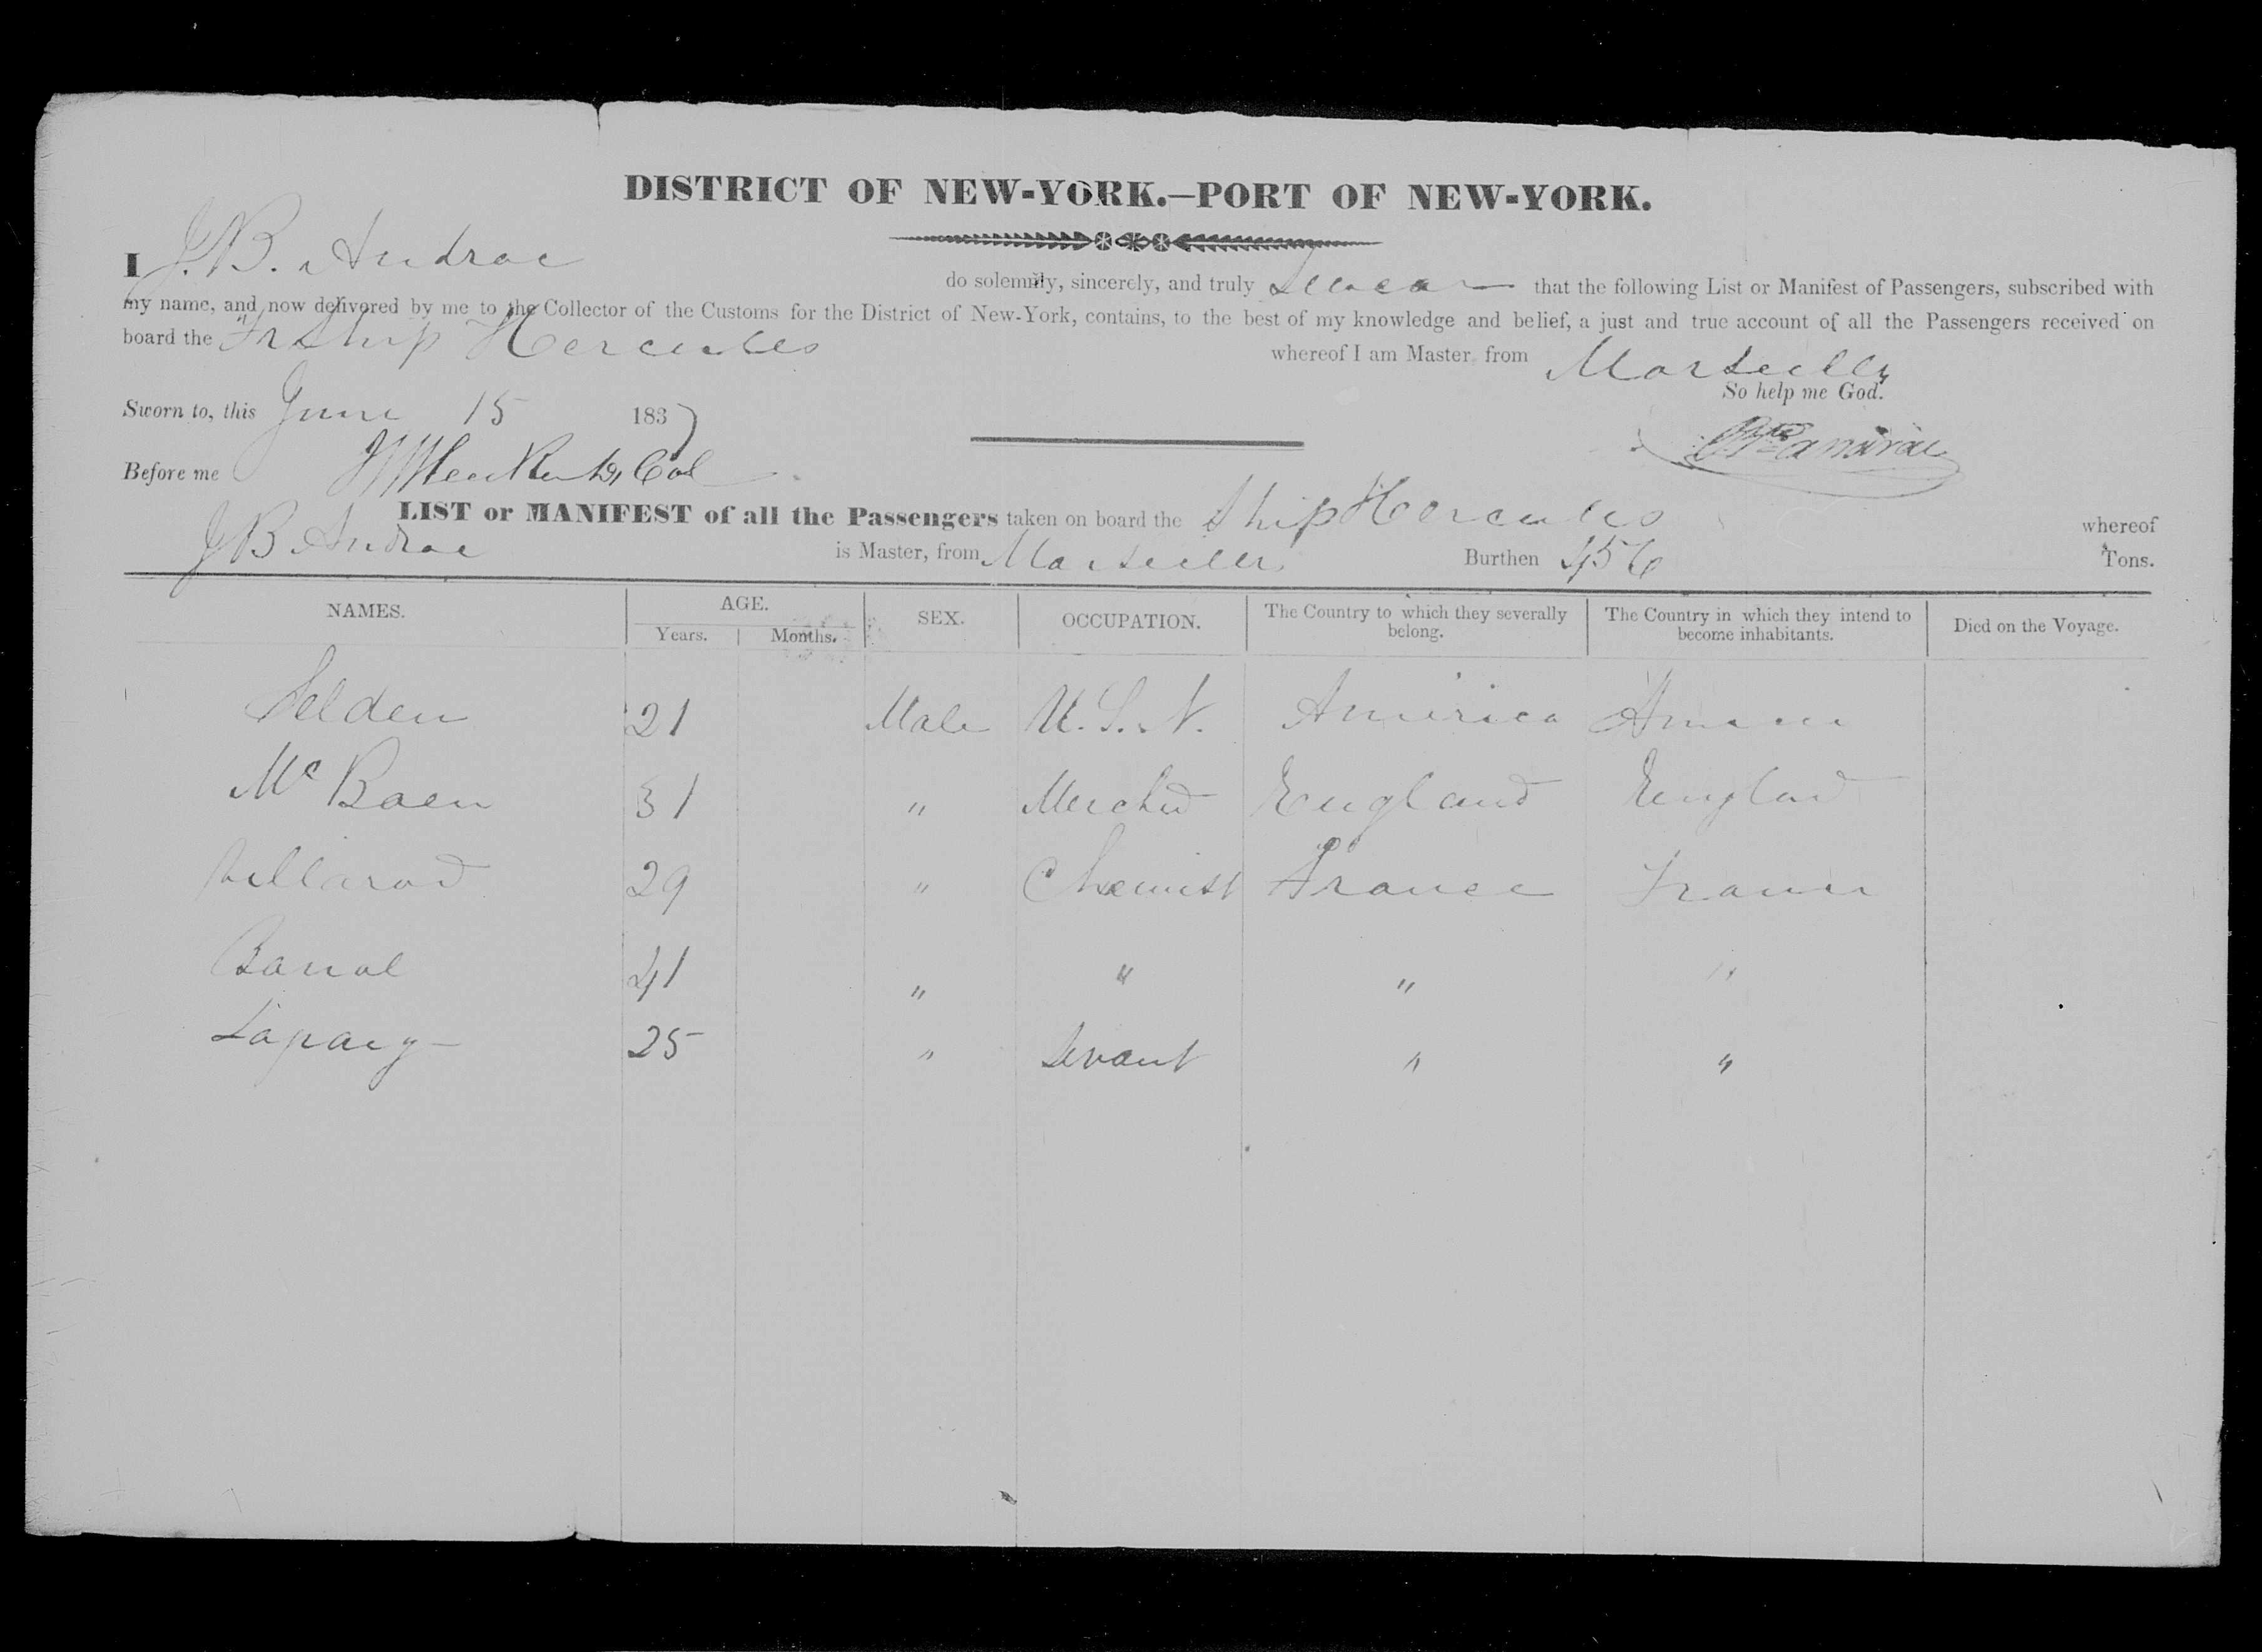 DISTRICT OF NEW-YORK.—PORT OF NEW-YORK.
I J. B. Andrac do solemnly, sincerely, and truly Swear that the following List or Manifest of Passengers, subscribed with
my name, and now delivered by me to the Collector of the Customs for the District of New-York, contains, to the best of my knowledge and belief, a just and true account of all the Passengers received on
board the Fr Ship Hercules whereof I am Master from Marseilles
So help me God.
Sworn to, this June 15 1837
Before me Col
LIST or MANIFEST of all the Passengers taken on board the Ship Hercules whereof
J B Andrac is Master, from Marseilles Burthen 456 Tons.
NAMES. AGE. SEX. OCCUPATION. The Country to which they severally belong. The Country in which they intend to become inhabitants. Died on the Voyage.
Years. Months.
Selden 21 Male U. S. N. America
Mc Baen 31 " England England
29 " Chemist France France
41 " " " "
25 " Servant " "